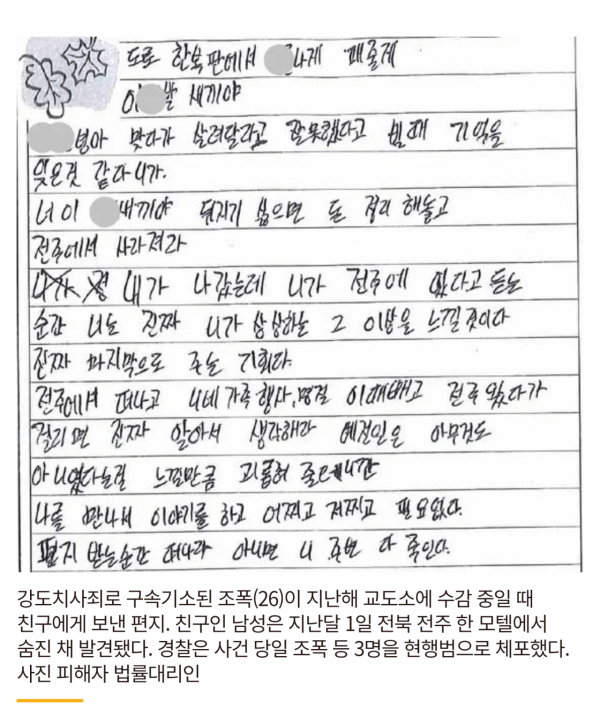 도로 한복판에서 나게 패줄게
이 발 새끼야
병아 맞다가 살려달라고 잘못했다고 빌때 기억을
잊은것 같다 니가.
너 이 새끼야 뒤지기 싫으면 돈 정리 해놓고
전주에서 사라져라
내가 나갔는데 니가 전주에 있다고 듣는
순간 너는 진짜 니가 상상하는 그 이상을 느낄것이다
진짜 마지막으로 주는 기회다.
전주에서 떠나고 니네 가족행사, 명절 이때빼고 전주 있다가
걸리면 진짜 알아서 생각해라 예전일은 아무것도
아니였다는걸 느낄만큼 괴롭혀 줄테니깐
나를 만나서 이야기를 하고 어쩌고 저쩌고 필요없다.
편지 받는순간 떠나라 아니면 니 주변 다 죽인다.
강도치사죄로 구속기소된 조폭(26)이 지난해 교도소에 수감 중일 때
친구에게 보낸 편지. 친구인 남성은 지난달 1일 전북 전주 한 모텔에서
숨진 채 발견됐다. 경찰은 사건 당일 조폭 등 3명을 현행범으로 체포했다.
사진 피해자 법률대리인